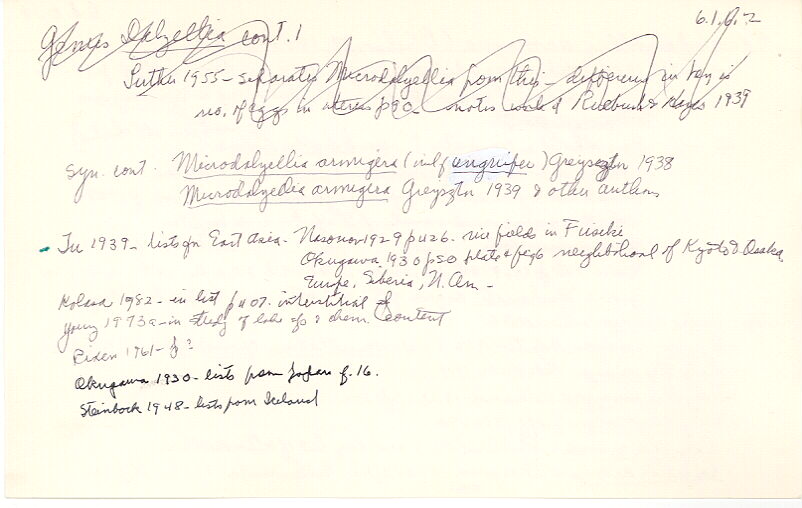 6.1.
Genus Dalyellia cont. 1
Luther 1955 - separates Microdalyellia from this - difference in key is
no. of eggs in uterus p 90 notes work of Ruebush & Hayes 1939
Syn. cont. Microdalyellia armigera (inf unguifer) Greyseztn 1938
Microdalyellia armigera Greysztn 1939 & other authors
Tu 1939 - lists from East Asia - Nasonov 1929 p 426. rice fields in Fuschi
Okugawa 1930 p 50 plate 4 fig 6 neighborhood of Kyoto & Osaka,
Europe, Siberia, N. Am -
Kolasa 1982 - in list p 407. interstitial
Young 1973a - in study of lake & chem. content
Rixen 1961 - ?
Okugawa 1930 - lists from Japan f. 16.
Steinbock 1948 - lists from Iceland